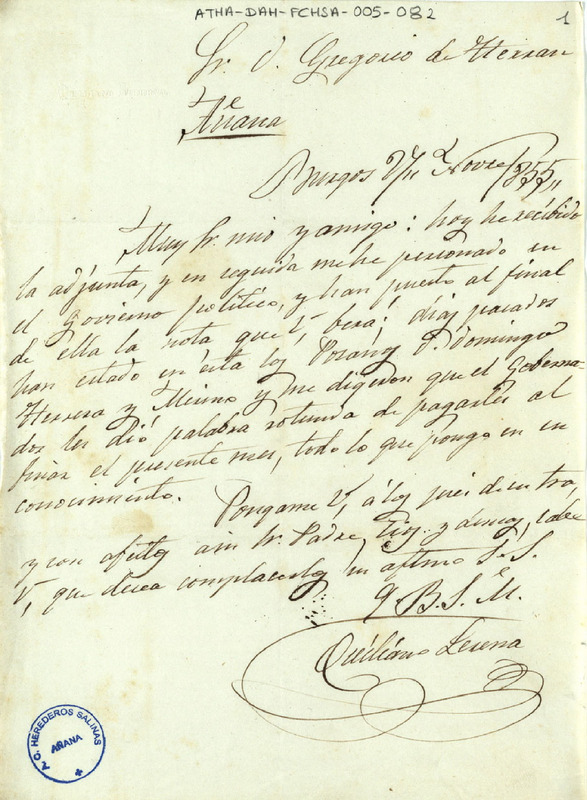 ATHA-DAH-FCHSA-005-082
1
Sr. D. Gregorio de Herran
Añana
Burgos Novre 1855,,
Muy Sr. mio y amigo: hoy he recibido
la adjunta, y en seguida me he personado en
el Govierno politico, y han puesto al final
de ella la nota que V. bera; dias pasados
han estado en ésta los D. Domingo
Herrera y Merino y me digeron que el Goberna-
dor les dió palabra rotunda de pagarles al
finar el presente mes, todo lo que pongo en su
conocimiento.
Pongame V. á los pies de su Sra,
y con afectos a su Sr. Padre, Tios y demas,
V, que desea complacerle su afmo S. S.
Q. B. S. M.
Lesena
C. HEREDEROS SALINAS
AÑANA